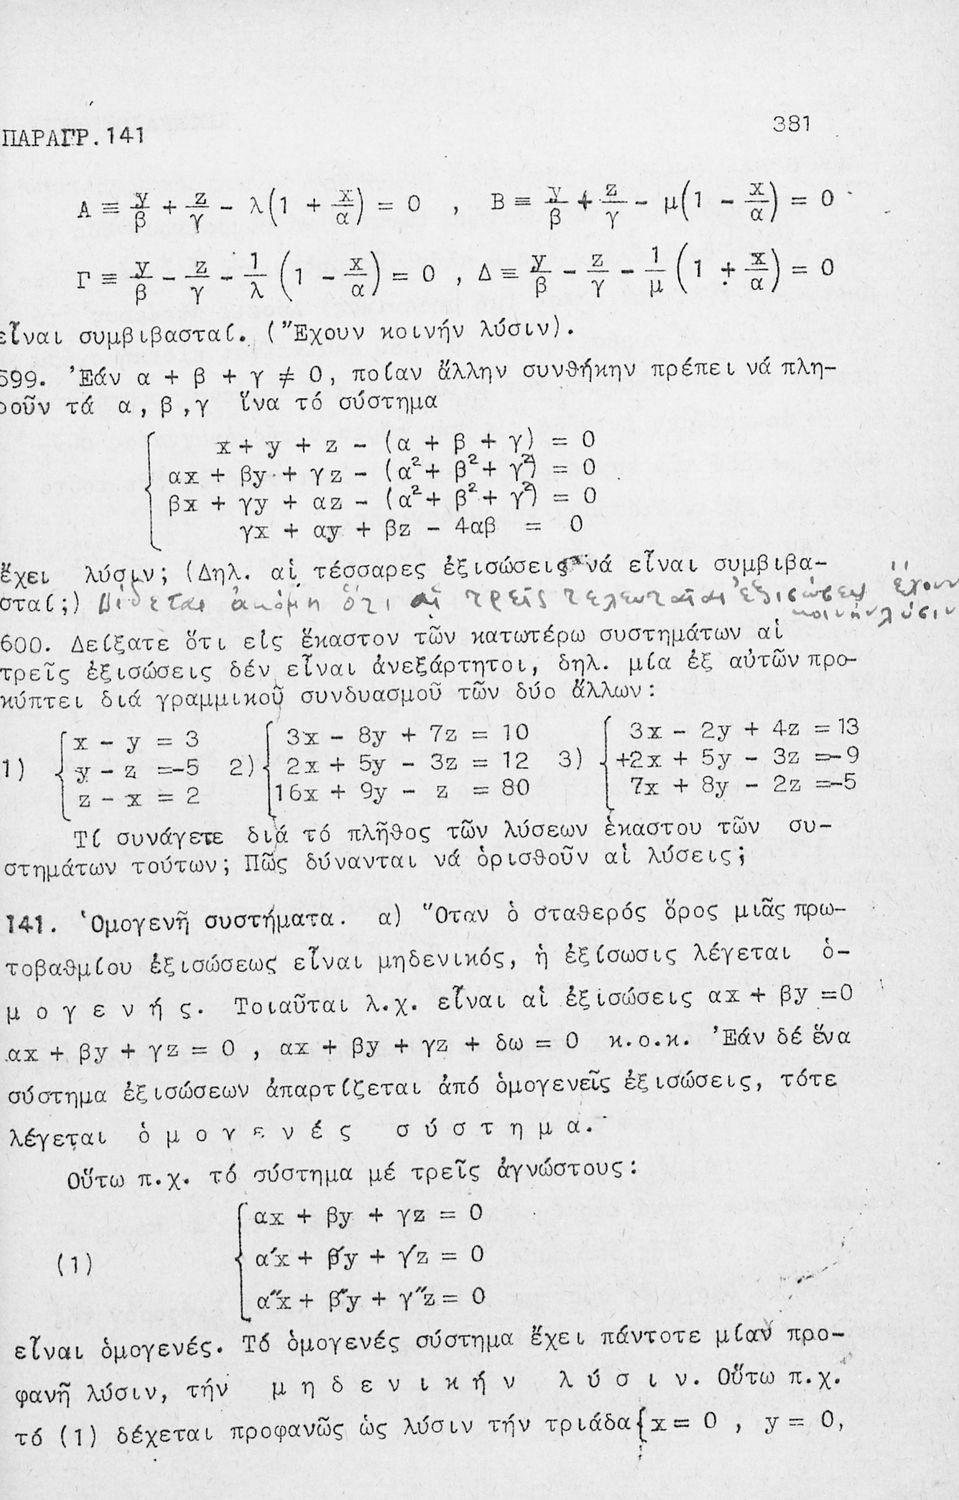 ΠΑΡΑΓΡ.141 381
Α ≡ y/β + z/γ − λ(1 + x/α) = 0 , Β ≡ y/β + z/γ − μ(1 − x/α) = 0
Γ ≡ y/β − z/γ − 1/λ (1 − x/α) = 0 , Δ ≡ y/β − z/γ − 1/μ (1 + x/α) = 0
εἶναι συμβιβασταί. (Ἔχουν κοινήν λύσιν).
599. Ἐάν α + β + γ ≠ 0, ποίαν ἄλλην συνθήκην πρέπει νά πλη-
ροῦν τά α, β ,γ ἵνα τό σύστημα
x + y + z − (α + β + γ) = 0
αx + βy + γz − (α²+ β²+ γ²) = 0
βx + γy + αz − (α²+ β²+ γ²) = 0
γx + αy + βz − 4αβ = 0
ἔχει λύσιν; (Δηλ. αἱ τέσσαρες ἐξισώσεις νά εἶναι συμβιβα-
σταί;) Δίδεται ἀκόμη ὅτι αἱ τρεῖς τελευταῖαι ἐξισώσεις ἔχουν
κοινήν λύσιν
600. Δείξατε ὅτι εἰς ἕκαστον τῶν κατωτέρω συστημάτων αἱ
τρεῖς ἐξισώσεις δέν εἶναι ἀνεξάρτητοι, δηλ. μία ἐξ αὐτῶν προ-
κύπτει διά γραμμικοῦ συνδυασμοῦ τῶν δύο ἄλλων:
x − y = 3 3x − 8y + 7z = 10 3x − 2y + 4z = 13
1) y − z =−5 2) 2x + 5y − 3z = 12 3) +2x + 5y − 3z =−9
z − x = 2 16x + 9y − z = 80 7x + 8y − 2z =−5
Τί συνάγετε διά τό πλῆθος τῶν λύσεων ἑκαστου τῶν συ-
στημάτων τούτων; Πῶς δύνανται νά ὁρισθοῦν αἱ λύσεις;
141. Ὁμογενῆ συστήματα. α) Ὅταν ὁ σταθερός ὅρος μιᾶς πρω-
τοβαθμίου ἐξισώσεως εἶναι μηδενικός, ἡ ἐξίσωσις λέγεται ὁ-
μ ο γ ε ν ή ς. Τοιαῦται λ.χ. εἶναι αἱ ἐξισώσεις αx + βy =0
αx + βy + γz = 0 , αx + βy + γz + δω = 0 κ.ο.κ. Ἐάν δέ ἕνα
σύστημα ἐξισώσεων ἀπαρτίζεται ἀπό ὁμογενεῖς ἐξισώσεις, τότε
λέγεται ὁ μ ο γ ε ν έ ς σ ύ σ τ η μ α.
Οὕτω π.χ. τό σύστημα μέ τρεῖς ἀγνώστους:
αx + βy + γz = 0
(1) α′x + β′y + γ′z = 0
α″x + β″y + γ″z = 0
εἶναι ὁμογενές. Τό ὁμογενές σύστημα ἔχει πάντοτε μίαν προ-
φανῆ λύσιν, τήν μ η δ ε ν ι κ ή ν λ ύ σ ι ν. Οὕτω π.χ.
τό (1) δέχεται προφανῶς ὡς λύσιν τήν τριάδα{x = 0 , y = 0,